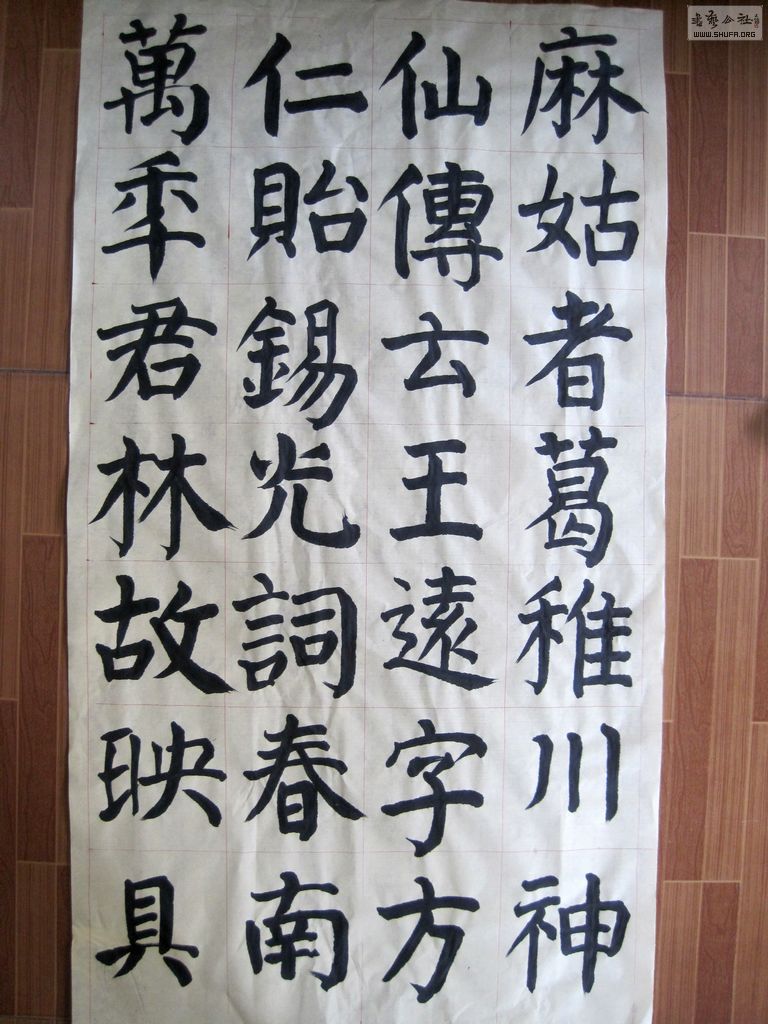 麻姑者葛稚川神
仙傳云王遠字方
仁貽錫光詞春南
萬年君林故映具
書藝公社
WWW.SHUFA.ORG